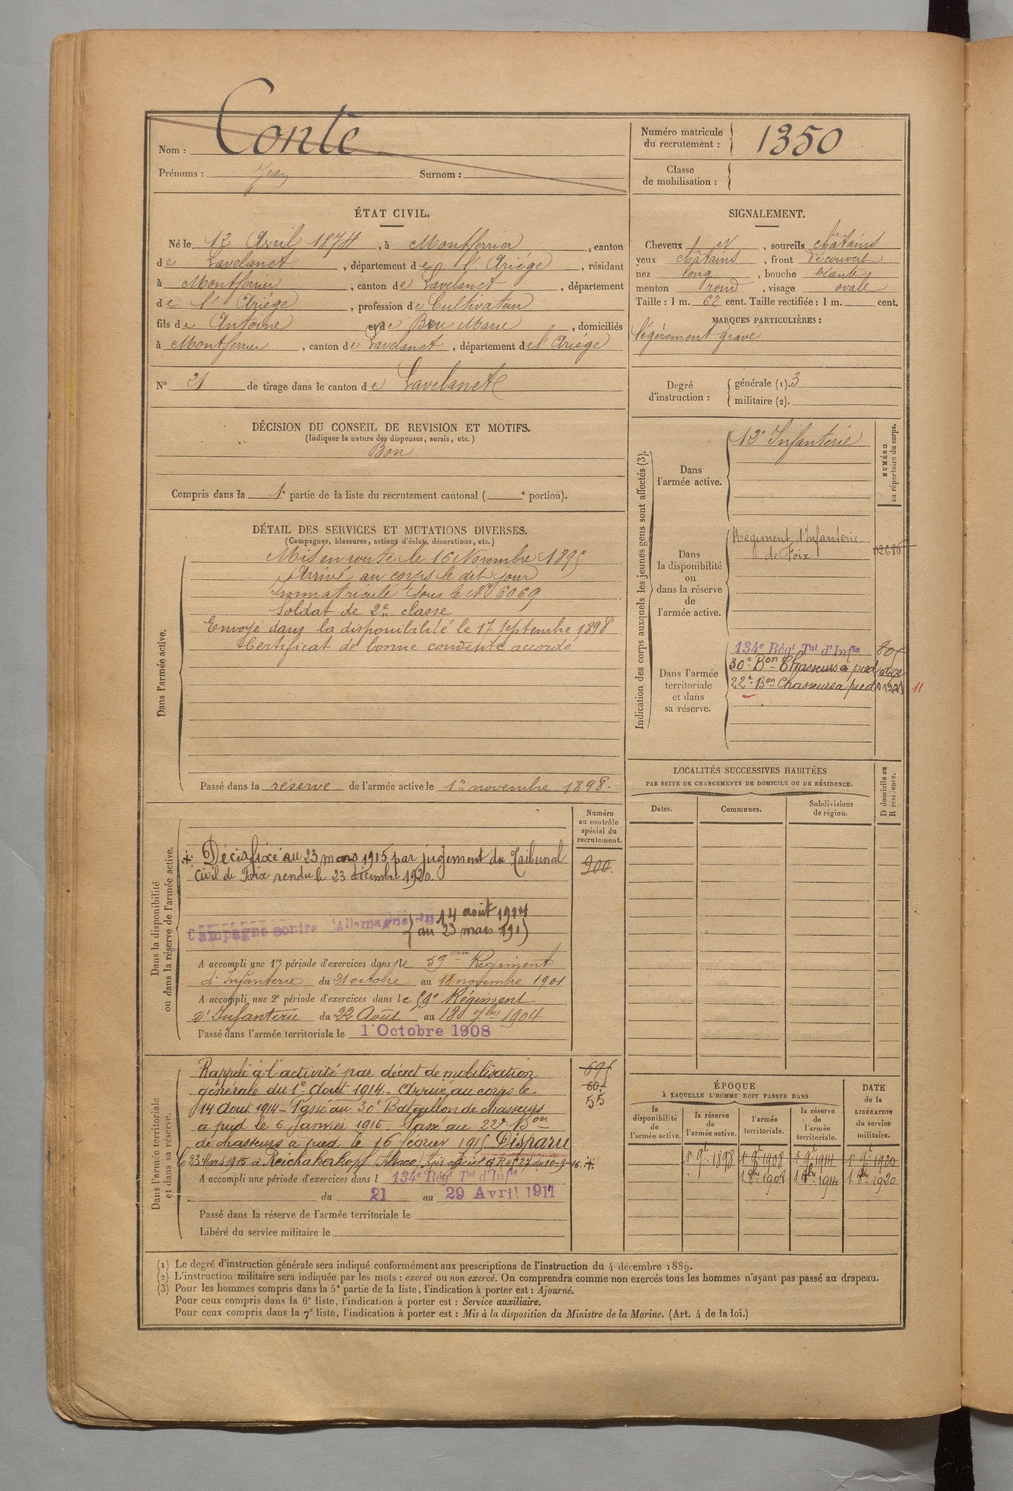 Nom : Conte
Prénoms : Jean Surnom :
Numéro matricule du recrutement : 1350
Classe de mobilisation :
ÉTAT CIVIL.
Né le 12 Avril 1874, à Montferrier, canton
de Lavelanet, département de l'Ariège, résidant
à Montferrier, canton de Lavelanet, département
de l'Ariège, profession de Cultivateur
fils de Antoine et de Marie, domiciliés
à Montferrier, canton de Lavelanet, département de l'Ariège
N° 21 de tirage dans le canton de Lavelanet
SIGNALEMENT.
Cheveux et, sourcils châtains
yeux châtains, front découvert
nez long, bouche
menton rond, visage ovale
Taille : 1 m. 62 cent. Taille rectifiée : 1 m. cent.
MARQUES PARTICULIÈRES :
légèrement gravé
Degré d'instruction : générale (1). 3
militaire (2).
DÉCISION DU CONSEIL DE REVISION ET MOTIFS.
(Indiquer la nature des dispenses, sursis, etc.)
Bon
Compris dans la 1e partie de la liste du recrutement cantonal ( e portion).
DÉTAIL DES SERVICES ET MUTATIONS DIVERSES.
(Campagnes, blessures, actions d'éclat, décorations, etc.)
Dans l'armée active.
Mis en route le 16 Novembre 1895
Arrivé au corps le dit jour
immatriculé sous le N° 6069
Soldat de 2e classe
Envoyé dans la disponibilité le 17 septembre 1898
Certificat de bonne conduite accordé
Passé dans la réserve de l'armée active le 1er novembre 1898.
Indication des corps auxquels les jeunes gens sont affectés (3).
NUMÉRO au répertoire du corps.
Dans l'armée active.
12e Infanterie
Dans la disponibilité ou dans la réserve de l'armée active.
Régiment d'Infanterie
de Foix
Dans l'armée territoriale et dans sa réserve.
134e Régt Tal d'Infie
30e Bon Chasseurs à pied
22e Bon Chasseurs à pied
11
LOCALITÉS SUCCESSIVES HABITÉES
PAR SUITE DE CHANGEMENTS DE DOMICILE OU DE RÉSIDENCE.
Dates. Communes. Subdivisions de région. D domicile ou R résidence.
Dans la disponibilité ou dans la réserve de l'armée active.
Numéro au contrôle spécial du recrutement.
900
+ Décès fixé au 23 mars 1915 par jugement du Tribunal
Civil de Foix rendu le 23 décembre 1920.
Campagne contre l'Allemagne du 14 août 1914
au 23 mars 1915
A accompli une 1re période d'exercices dans le 59ème Régiment
d'Infanterie du 21 octobre au 18 novembre 1901
A accompli une 2e période d'exercices dans le 59e Régiment
d'Infanterie du 22 Août au 18 7bre 1904
Passé dans l'armée territoriale le 1 Octobre 1908
Dans l'armée territoriale et dans sa réserve.
Rappelé à l'activité par décret de mobilisation
générale du 1er Août 1914. Arrivé au corps le
14 Août 1914. Passé au 30e Bataillon de chasseurs
à pied le 6 Janvier 1915. Passé au 22e Bon
de chasseurs à pied le 16 février 1915 Disparu
le 23 Mars 1915 à Reichakerkopf Alsace
A accompli une période d'exercices dans l 134e Régt Tal d'Infie
du 21 au 29 Avril 1911
Passé dans la réserve de l'armée territoriale le
Libéré du service militaire le
60
55
ÉPOQUE
À LAQUELLE L'HOMME DOIT PASSER DANS
la disponibilité de l'armée active. la réserve de l'armée active. l'armée territoriale. la réserve de l'armée territoriale. DATE de la LIBÉRATION du service militaire.
1 9bre 1898 1 9bre 1908 1 9bre 1914 1 9bre 1920
1 8bre 1908 1 8bre 1914 1 8bre 1920
(1) Le degré d'instruction générale sera indiqué conformément aux prescriptions de l'instruction du 4 décembre 1889.
(2) L'instruction militaire sera indiquée par les mots : exercé ou non exercé. On comprendra comme non exercés tous les hommes n'ayant pas passé au drapeau.
(3) Pour les hommes compris dans la 5e partie de la liste, l'indication à porter est : Ajourné.
Pour ceux compris dans la 6e liste, l'indication à porter est : Service auxiliaire.
Pour ceux compris dans la 7e liste, l'indication à porter est : Mis à la disposition du Ministre de la Marine. (Art. 4 de la loi.)